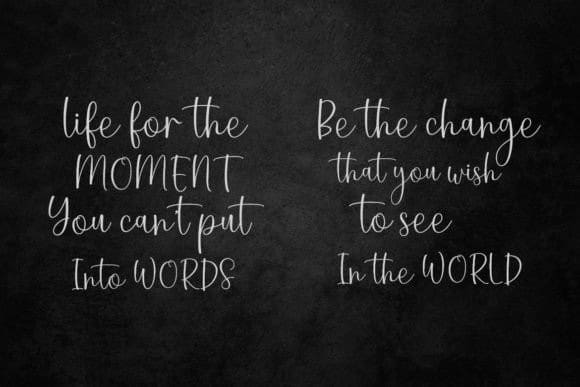 life for the
MOMENT
You can't put
Into WORDS
Be the change
that you wish
to see
In the WORLD